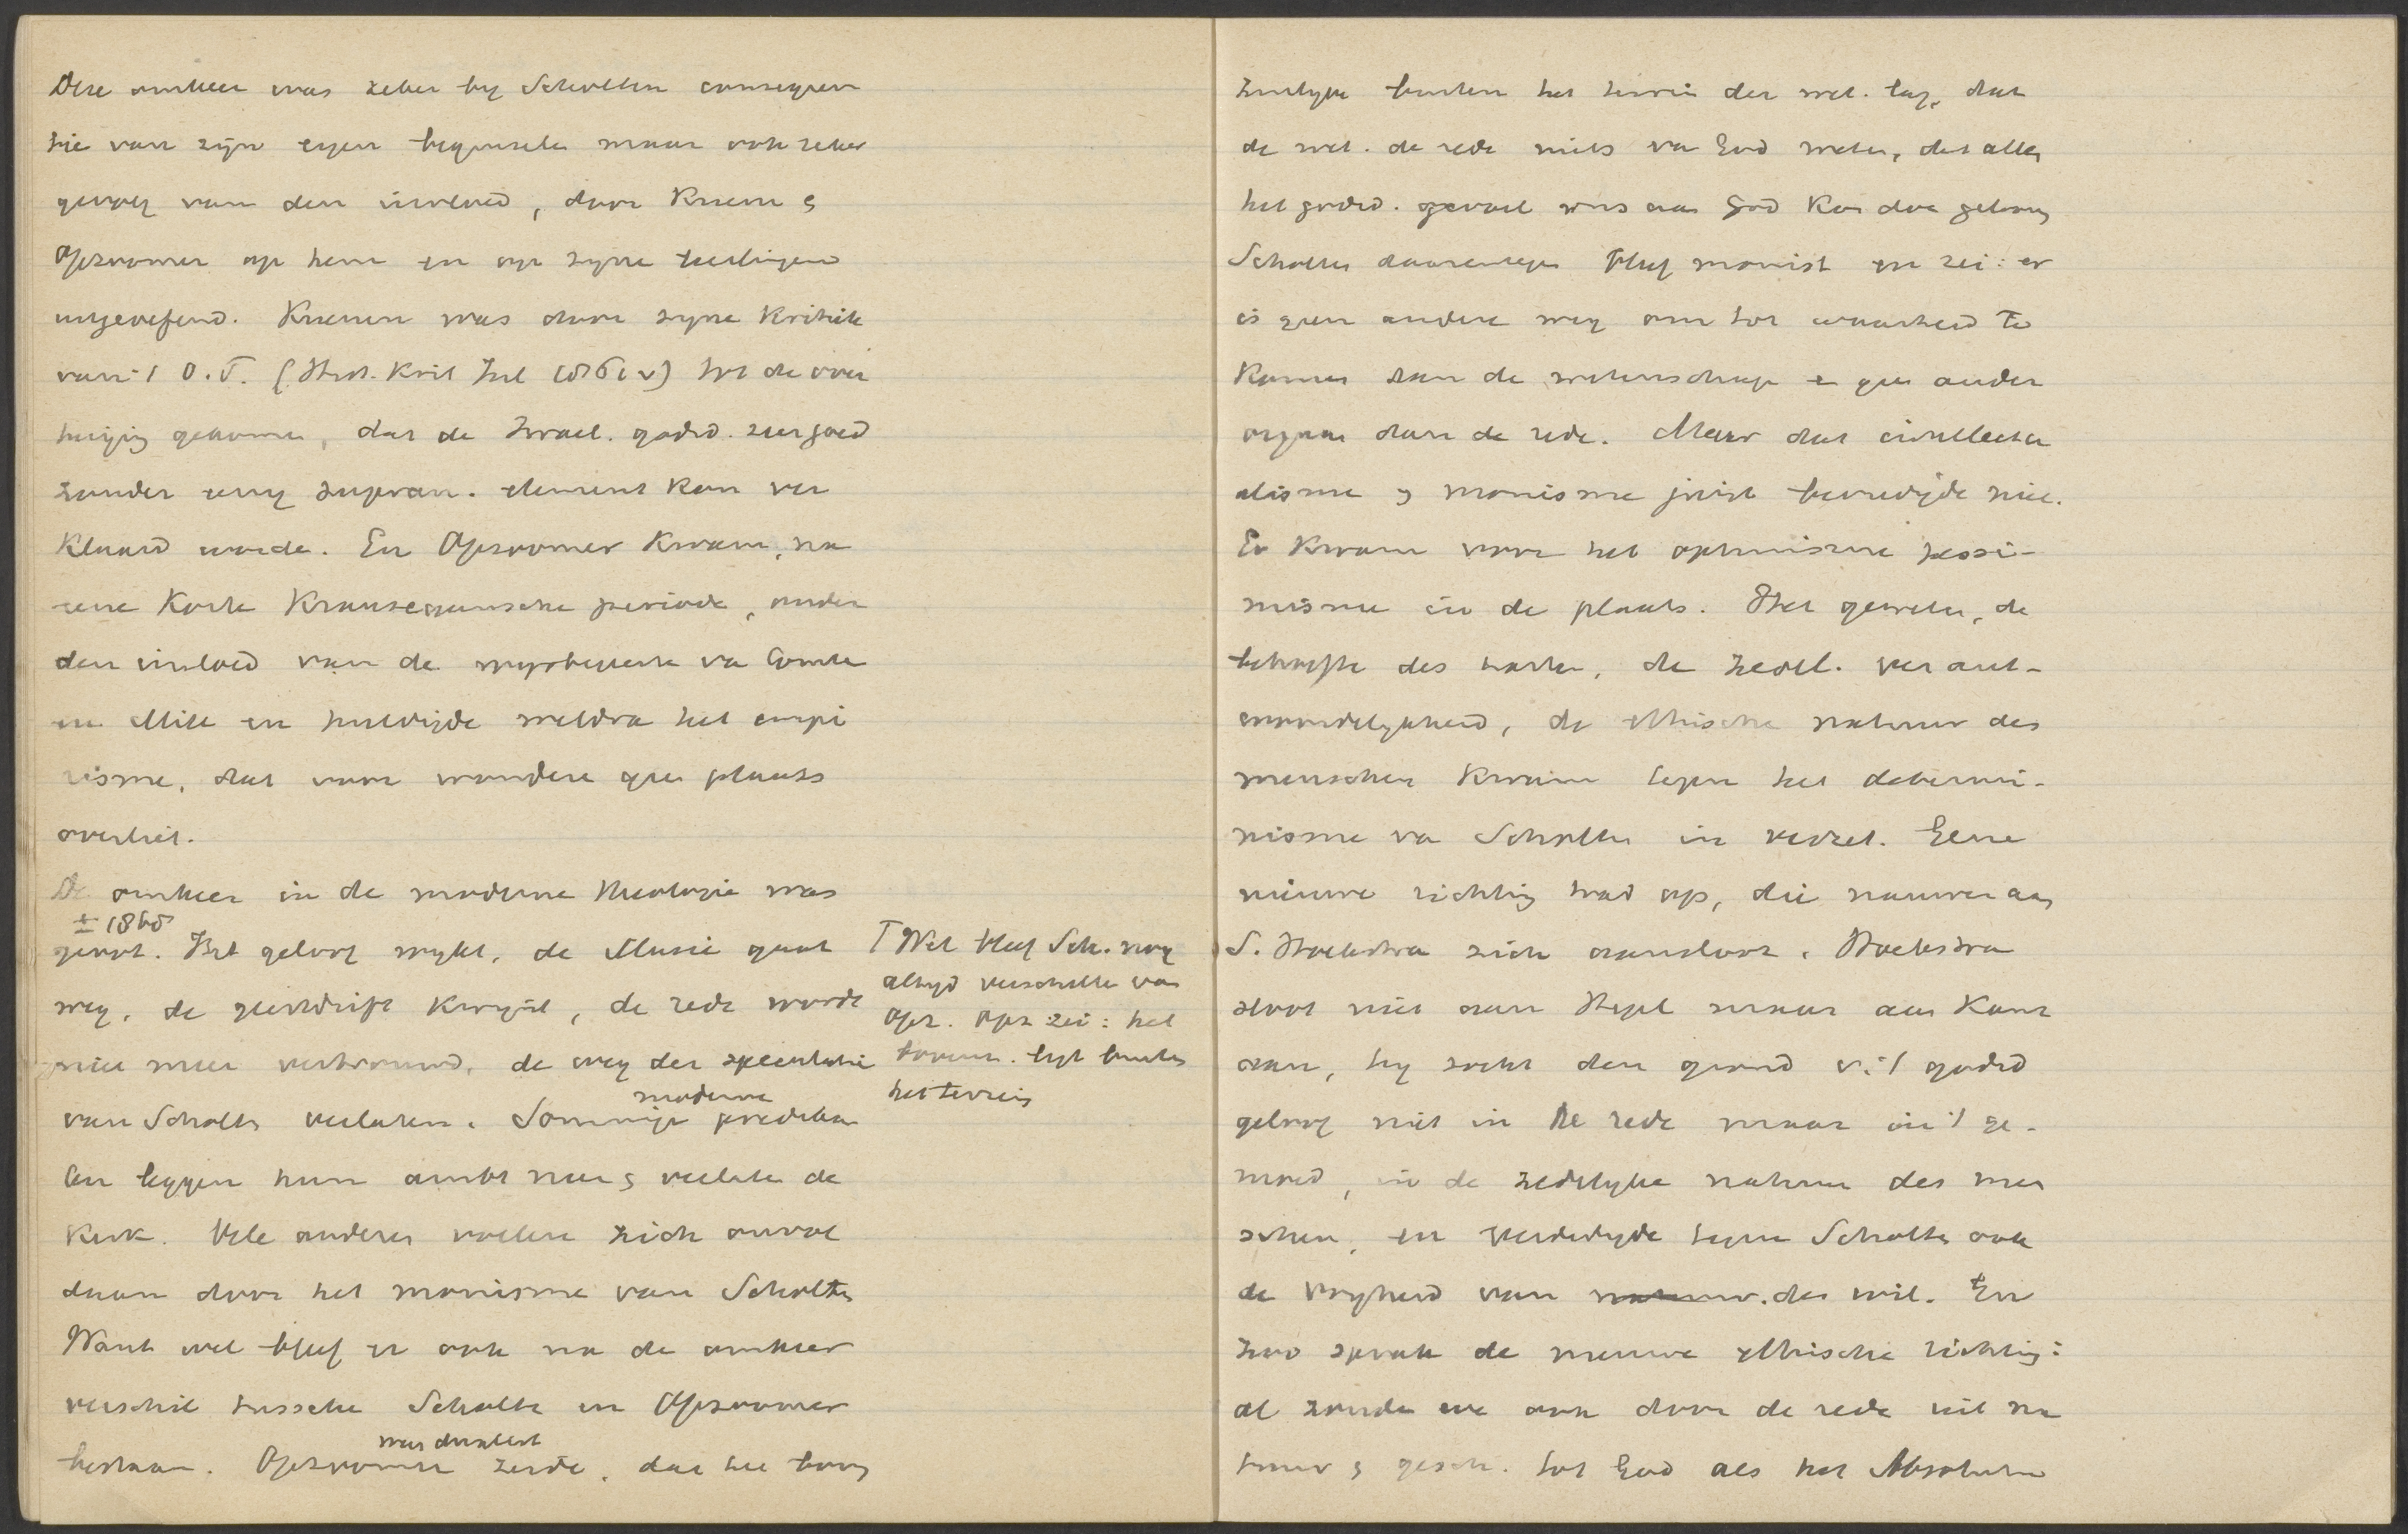 Deze omkeer was zeker by Scholten consequen
tie van zijn eigen beginselen maar ook zeker
gevolg van den invloed, door Kuenen &
Opzoomer op hem en op zyne leerlingen
uitgeoefend. Kuenen was door zyne kritiek
van 't O.T. (Hist. Krit Inl 1861 v) tot de over
tuiging gekomen, dat de Israel. godsd. zeer goed
zonder eenig supran. element kon ver
klaard worden. En Opzoomer kwam, na
eene korte Krauseaansche periode, onder
den invloed van de wysbegeerte van Comte
en Mill en huldigde weldra het empi
risme, dat voor wonderen geen plaats
overliet.
De omkeer in de moderne theologie was
± 1865
groot. Het geloof wykt, de illusie gaat
weg, de geestdrift kwynt, de rede wordt
niet meer vertrouwd, de weg der speculatie
van Scholten verlaten. Sommige moderne predikan
ten leggen hun ambt neer & verlaten de
kerk. Vele anderen voelen zich onvol
daan door het monisme van Scholten
Want wel bleef er ook na de omkeer
verschil tusschen Scholten en Opzoomer
bestaan. Opzoomer was dualist zeide, dat het boven
⊤ Wel bleef Sch. nog
altyd verschillen van
Opz. Opz zei: het
bovenn. ligt buiten
het terrein
zinlyke buiten het terrein der wet. lag, dat
de wet. de rede niets van God weten, dat alleen
het godsd. gevoel ons aan God kon doen gelooven
Scholten daarentegen bleef monist en zei: er
is geen andere weg om tot waarheid te
komen dan de wetenschap en geen ander
orgaan dan de rede. Maar dat intellectu
alisme & monisme juist bevredigde niet.
Er kwam voor het optimisme pessi-
misme in de plaats. Het geweten, de
behoefte des harten, de zedel. verant-
woordelykheid, de ethische natuur des
menschen kwam tegen het determi-
nisme van Scholten in verzet. Eene
nieuwe richting trad op, die nauwer aan
S. Hoekstra zich aansloot. Hoekstra
sloot niet aan Hegel maar aan Kant
aan, hy zocht den grond v. 't godsd
geloof niet in de rede maar in 't ge-
moed, in de zedelyke natuur des men
schen, en verdedigde tegen Scholten ook
de vryheid van natuur. den wil. En
zoo sprak de nieuwe ethische richting:
al zouden we ook door de rede uit na
tuur & gesch. tot God als het Absolute